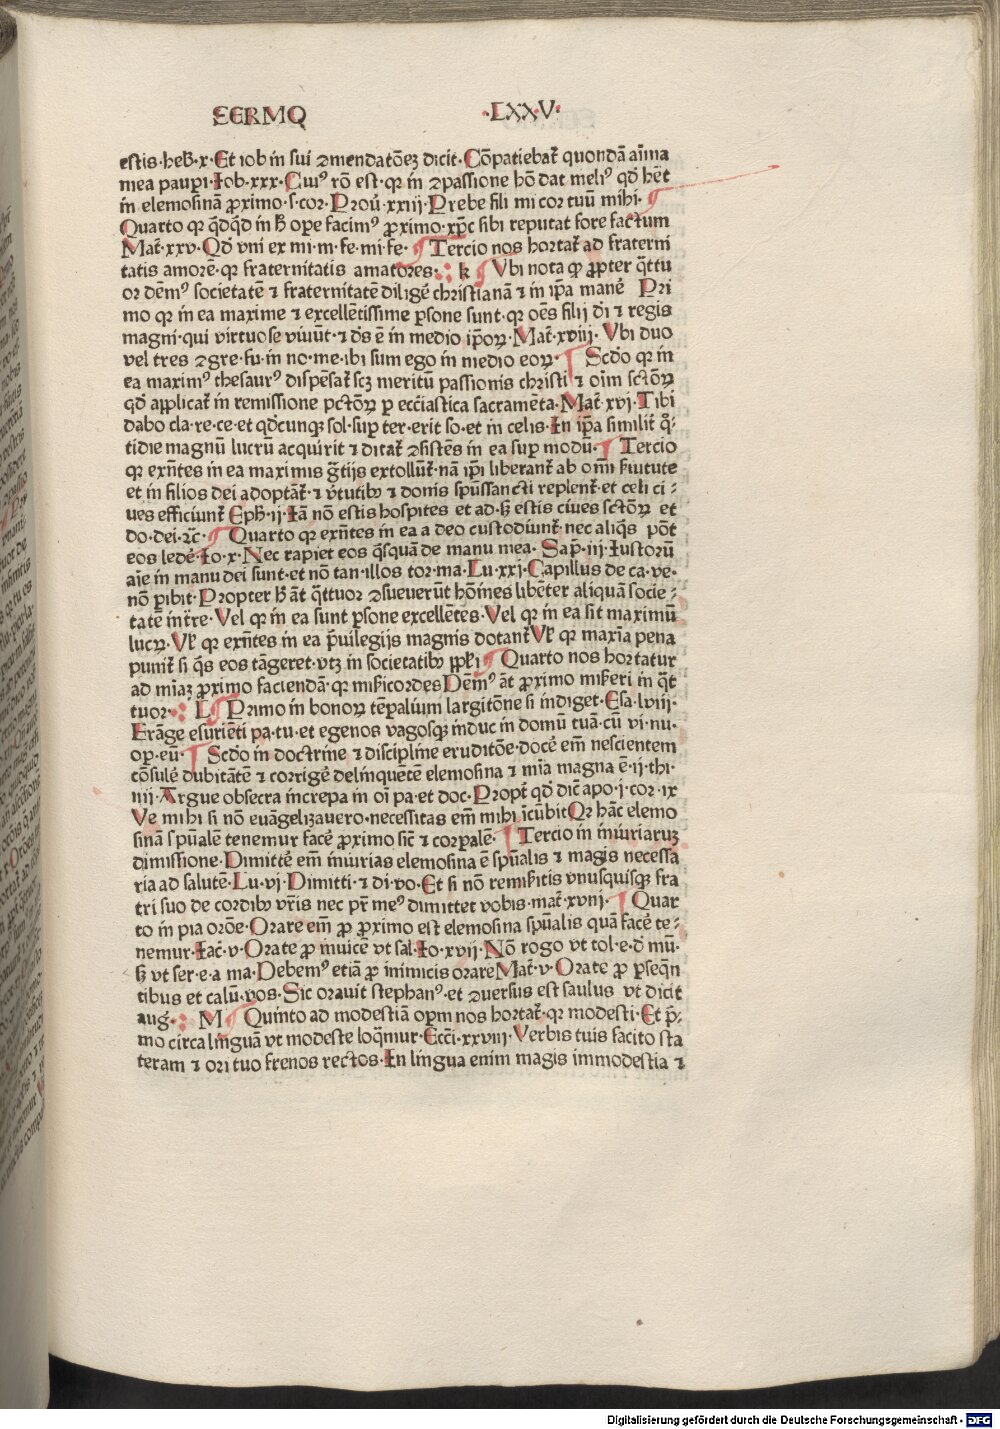 SERMO ·LXXV·
estis·heb̄·x·Et iob in sui ↄmendatōeꝫ dicit·Cōpatiebat̄ quondā aīma
mea paup̲i·Iob·xxx·Cuiꝰ rō est·qꝛ in ↄpassione hō dat meliꝰ qd̄ hēt
in elemosinā ꝓximo·s·cor·Prou̇·xxiij·Prebe fili mi cor tuū mihi·
Quarto qꝛ qd̄qd̄ in h̄ op̲e facimꝰ ꝓximo·xp̄c sibi reputat fore factum
Mat̄·xxv·Qd̄ vni ex mi·m·fe·mi·fe· Tercio nos hortat̄ ad fraterni
tatis amorē·qꝛ fraternitatis amatores· k Vbi nota ꝙ ꝓpter q̄ttu
or dēmꝰ societatē ⁊ fraternitatē diligē christianā ⁊ in ip̄a manē Pri
mo qꝛ in ea maxime ⁊ excellētissime p̲sone sunt·qꝛ oēs filij dī ⁊ regis
magni·qui virtuose viuūt·⁊ dūs ē in medio ip̄oꝝ·Mat̄·xviij·Vbi duo
vel tres ↄgre·fu·in no·me·ibi sum ego in medio eoꝝ· Scd̄o qꝛ in
ea maximꝰ thesaurꝰ dispēsat̄ scꝫ meritū passionis christi ⁊ oīm sctōꝝ
qd̄ applicat̄ in remissione pctōꝝ p̲ ecc̄iastica sacramēta·Mat̄·xvj·Tibi
dabo cla·re·ce·et qd̄cunqꝫ sol·sup̲ ter·erit so·et in celis·In ip̄a similit̄ q̄·
tidie magnū lucrū acquirit ⁊ ditat̄ ↄsistēs in ea sup̲ modū· Tercio
qꝛ exn̄tes in ea maximis gr̄tijs extollūt̄·nā ip̄i liberant̄ ab om̄i ẜuitute
et in filios dei adoptāt̄·⁊ v̄tutibꝫ ⁊ donis sp̄ussancti replent̄·et celi ci⸗
ues efficiunt̄ Eph̄·ij·Iā nō estis hospites et ad·ẜꝫ estis ciues sctōꝝ et
do·dei·⁊c̄· Quarto qꝛ exn̄tes in ea a deo custodiunt̄·nec aliq̄s pōt
eos ledē·Io·x·Nec rapiet eos q̄squā de manu mea·Sap̄·iij·Iustorū
aīe in manu dei sunt·et nō tan·illos tor·ma·Lu·xxj·Capillus de ca·ve·
nō p̲ibit·Propter h̄ āt q̄ttuor ↄsueuerūt hōines libēter aliquā socie⸗
tatē int̄re·Vel qꝛ in ea sunt p̲sone excellētes·Vel qꝛ in ea sīt maximū
lucꝝ·Vl̄ qꝛ exn̄tes in ea p̄uilegijs magnis dotant̄ Vl̄ qꝛ maxīa pena
punit̄ si q̄s eos tāgeret·vtꝫ in societatibꝫ ppl̄i Quarto nos hortatur
ad mīaꝫ ꝓximo faciendā·qꝛ miẜicordes Dēmꝰ āt ꝓximo miẜeri in q̄t
tuor· L Primo in bonoꝝ tēp̲alium largitōne si indiget·Esa·lviij·
Frāge esuriēti pa·tu·et egenos vagosqꝫ induc in domū tuā·cū vi·nu·
op̲·eū· Scd̄o in doctrine ⁊ discipline eruditōe·docē em̄ nescientem
cōsulē dubitātē ⁊ corrigē delinquētē elemosina ⁊ mīa magna ē·ij·thi·
iiij·Argue obsecra increpa in oī pa·et doc·Propt̄ qd̄ dic̄ apo·j·cor·ix
Ve mihi si nō euāgelizauero·necessitas em̄ mihi īcūbit Qꝛ hāc elemo
sinā sp̄ualē tenemur facē ꝓximo sic̄ ⁊ corp̲alē· Tercio in iniuriaruꝫ
dimissione·Dimittē em̄ iniurias elemosina ē sp̄ualis ⁊ magis necessa
ria ad salutē·Lu·vj·Dimitti·⁊ di·vo·Et si nō remiẜitis vnusquisqꝫ fra
tri suo de cordibꝫ vr̄is nec pr̄ meꝰ dimittet vobis·mat̄·xviij· Quar
to in pia orōe·Orare em̄ ꝓ ꝓximo est elemosina sp̄ualis quā facē te⸗
nemur·Iac̄·v·Orate ꝓ inuicē vt sal·Io·xvij·Nō rogo vt tol·e·d̄ mū·
ẜꝫ vt ser·e·a ma·Debemꝰ etiā ꝓ inimicis orare Mat̄·v·Orate ꝓ p̲seq̄n
tibus et calū·vos·Sic orauit stephanꝰ·et ↄuersus est saulus vt dicit
auḡ· M Quinto ad modestiā op̲m nos hortat̄·qꝛ modesti·Et p̄⸗
mo circa linguā vt modeste loq̄mur·Ecc̄i·xxviij·Verbis tuis facito sta
teram ⁊ ori tuo frenos rectos·In lingua enim magis immodestia ⁊
Digitalisierung gefördert durch die Deutsche Forschungsgemeinschaft · DFG